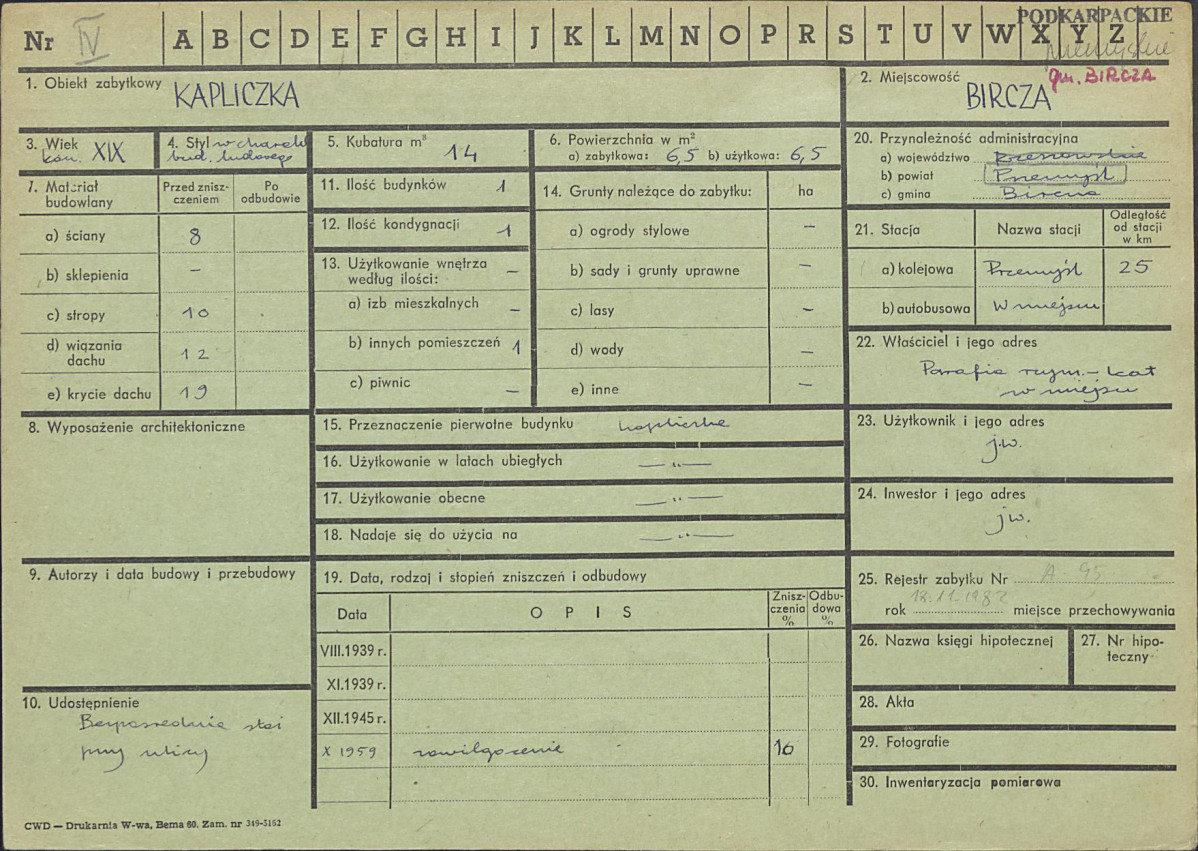 PODKARPACKIE
Nr IV A B C D E F G H I J K L M N O P R S T U V W X Y Z
przemyskie
gm. BIRCZA
1. Obiekt zabytkowy KAPLICZKA
2. Miejscowość BIRCZA
3. Wiek kon. XIX
4. Styl w charakt. bud. ludowego
5. Kubatura m³ 14
6. Powierzchnia w m²
a) zabytkowa: 6,5 b) użytkowa: 6,5
7. Materiał budowlany
Przed zniszczeniem
Po odbudowie
a) ściany 8
b) sklepienia –
c) stropy 10
d) wiązania dachu 12
e) krycie dachu 19
8. Wyposażenie architektoniczne
9. Autorzy i data budowy i przebudowy
10. Udostępnienie
Bezpośrednie stoi
przy ulicy
11. Ilość budynków 1
12. Ilość kondygnacji 1
13. Użytkowanie wnętrza według ilości: –
a) izb mieszkalnych –
b) innych pomieszczeń 1
c) piwnic –
14. Grunty należące do zabytku: ha
a) ogrody stylowe –
b) sady i grunty uprawne –
c) lasy –
d) wody –
e) inne –
15. Przeznaczenie pierwotne budynku kapliczka
16. Użytkowanie w latach ubiegłych —„—
17. Użytkowanie obecne —„—
18. Nadaje się do użycia na —„—
19. Data, rodzaj i stopień zniszczeń i odbudowy
Data
OPIS
Zniszczenia %
Odbudowa %
VIII.1939 r.
XI.1939 r.
XII.1945 r.
X 1959 zawilgocenie 10
20. Przynależność administracyjna
a) województwo Rzeszowskie
b) powiat Przemyśl
c) gmina Bircza
21. Stacja
Nazwa stacji
Odległość od stacji w km
a) kolejowa Przemyśl 25
b) autobusowa W miejscu
22. Właściciel i jego adres
Parafia rzym.-kat
w miejscu
23. Użytkownik i jego adres
j.w.
24. Inwestor i jego adres
jw.
25. Rejestr zabytku Nr A-95
rok 18.11.1982 miejsce przechowywania
26. Nazwa księgi hipotecznej
27. Nr hipoteczny
28. Akta
29. Fotografie
30. Inwentaryzacja pomiarowa
CWD — Drukarnia W-wa, Bema 60. Zam. nr 349-5162